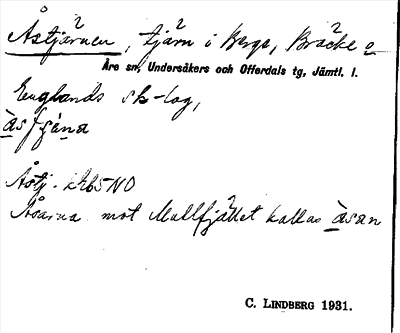 Åstjärnen, tjärn i Berge, Bräcke o
Åre sn, Undersåkers och Offerdals tg, Jämtl. l.
Englands sk-lag,
Åstj. 
Åsarna mot Mullfjället kallas àsan
C. LINDBERG 1931.